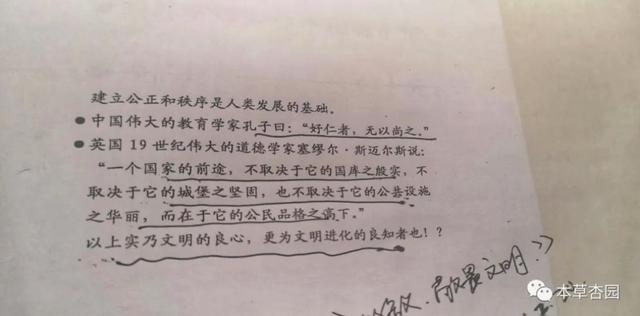 建立公正和秩序是人类发展的基础。
●中国伟大的教育学家孔子曰：“好仁者，无以尚之。”
●英国19世纪伟大的道德学家塞缪尔·斯迈尔斯说：
“一个国家的前途，不取决于它的国库之殷实，不
取决于它的城堡之坚固，也不取决于它的公共设施
之华丽，而在于它的公民品格之高下。”
以上实乃文明的良心，更为文明进化的良知者也！？
敬畏文明
本草杏园